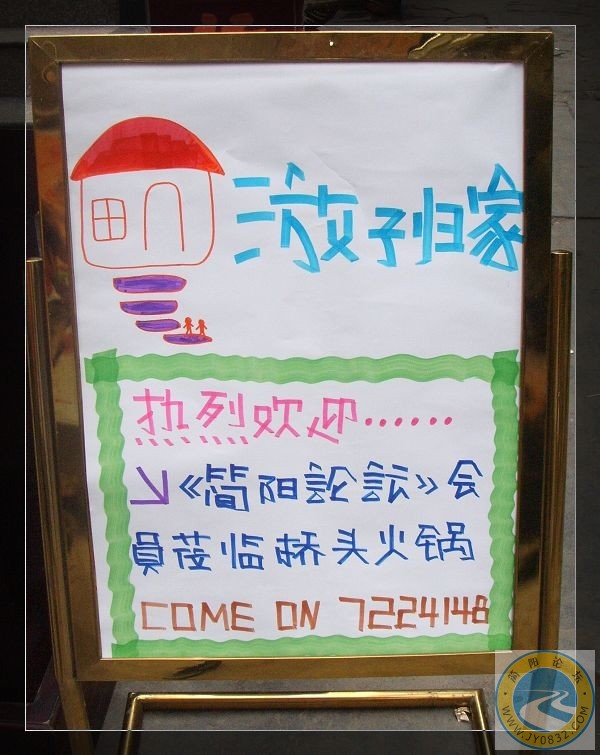 游子归家
热烈欢迎……
↘《简阳論訟》会
員莅临桥头火锅
COME ON 7224148
简阳论坛
WWW.JY0832.COM